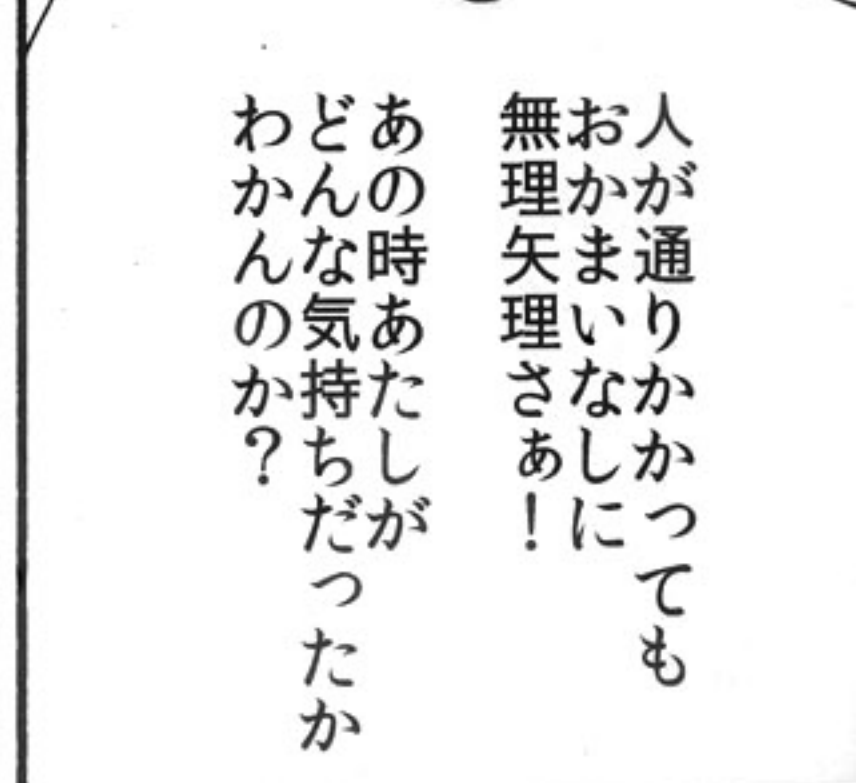 人が通りかかっても
おかまいなしに
無理矢理さぁ！
あの時あたしが
どんな気持ちだったか
わかんのか？